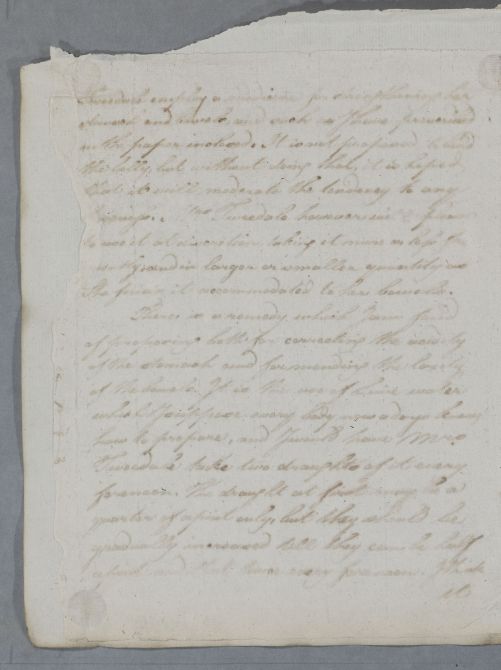 Tweedale employ a medicine for strengthening her
stomach and bowels and such as I have prescribed
in the paper inclosed. It is not proposed to bind
the belly, but without doing that, it is hoped
that it will moderate the tendency to any
Mrs Tweedale however is
to use it at discretion taking it more or less
and in larger or smaller quantity as
she finds it accommodated to her bowels.
There is a remedy which I am fond
of proposing both for correcting the acidity
of the stomach and for mending the
of the bowels. It is the use of Lime water
which I suppose every body now adays knows
how to prepare, and I would have Mrs
Tweedale take two draughts of it every
forenoon. The draught at first may be a
quarter of a pint only, but they should be
gradually increased till they can be half
a pint and that twice every forenoon. I think